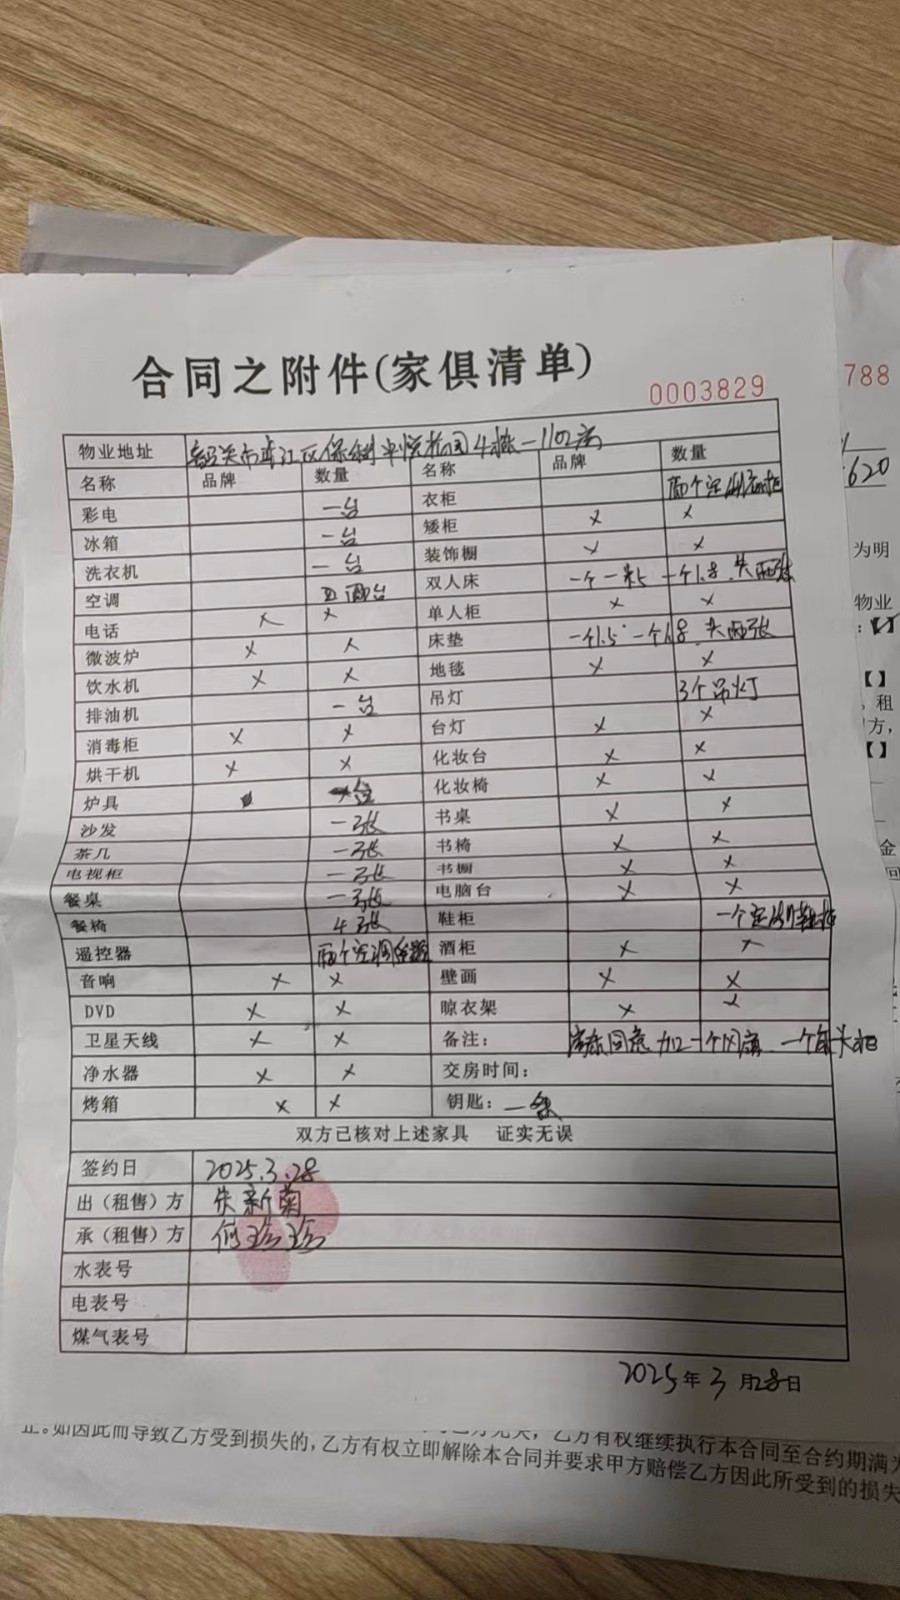 合同之附件(家俱清单)
0003829
788
620
物业地址 韶关市浈江区保利中悦花园4栋-1102房
名称 品牌 数量 名称 品牌 数量
彩电 一台 衣柜 两个定制衣柜
冰箱 一台 矮柜 × ×
洗衣机 一台 装饰橱 × ×
空调 两台 双人床 一个一米5 一个1.8 共两张
电话 × × 单人柜 × ×
微波炉 × × 床垫 一个1.5 一个1.8 共两张
饮水机 × × 地毯 × ×
排油机 一台 吊灯 3个吊灯
消毒柜 × × 台灯 × ×
烘干机 × × 化妆台 × ×
炉具 台 化妆椅 × ×
沙发 一张 书桌 × ×
茶几 一张 书椅 × ×
电视柜 一张 书橱 × ×
餐桌 一张 电脑台 × ×
餐椅 4张 鞋柜 一个定制鞋柜
遥控器 两个空调 酒柜 × ×
音响 × × 壁画 × ×
DVD × × 晾衣架 × ×
卫星天线 × × 备注: 房东同意加一个风扇 一个床头柜
净水器 × × 交房时间:
烤箱 × × 钥匙: 一条
双方已核对上述家具 证实无误
签约日 2025.3.28
出（租售）方 朱新菊
承（租售）方 何珍珍
水表号
电表号
煤气表号
2025年3月28日
为明
物业
【】
租
方,
【】
金
乙方有权继续执行本合同至合约期满为
止。如因此而导致乙方受到损失的,乙方有权立即解除本合同并要求甲方赔偿乙方因此所受到的损失